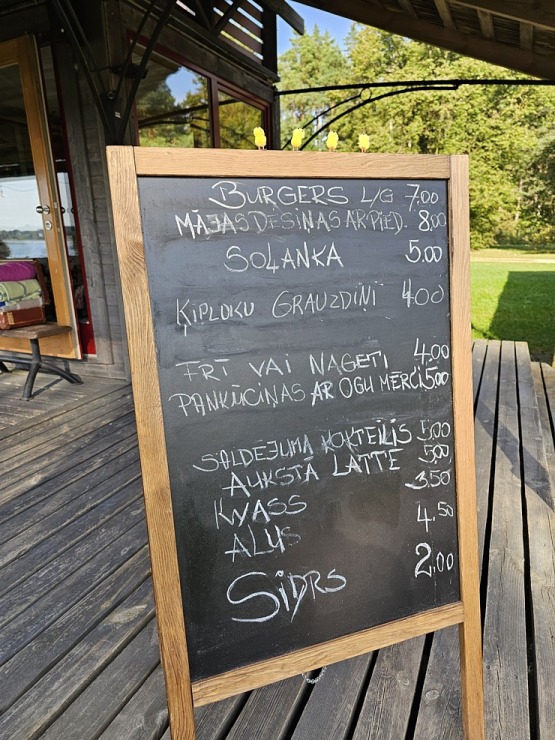 BURGERS L/G 7,00
MĀJAS DESIŅAS AR PIED. 8,00
SOĻANKA 5,00
ĶIPLOKU GRAUZDIŅI 4,00
FRĪ VAI NAGETI 4,00
PANKŪCIŅAS AR OGU MĒRCI 5,00
SALDĒJUMA KOKTEILIS 5,00
AUKSTĀ LATTE 5,00
KVASS 3,50
ALUS 4,50
SIDRS 2,00